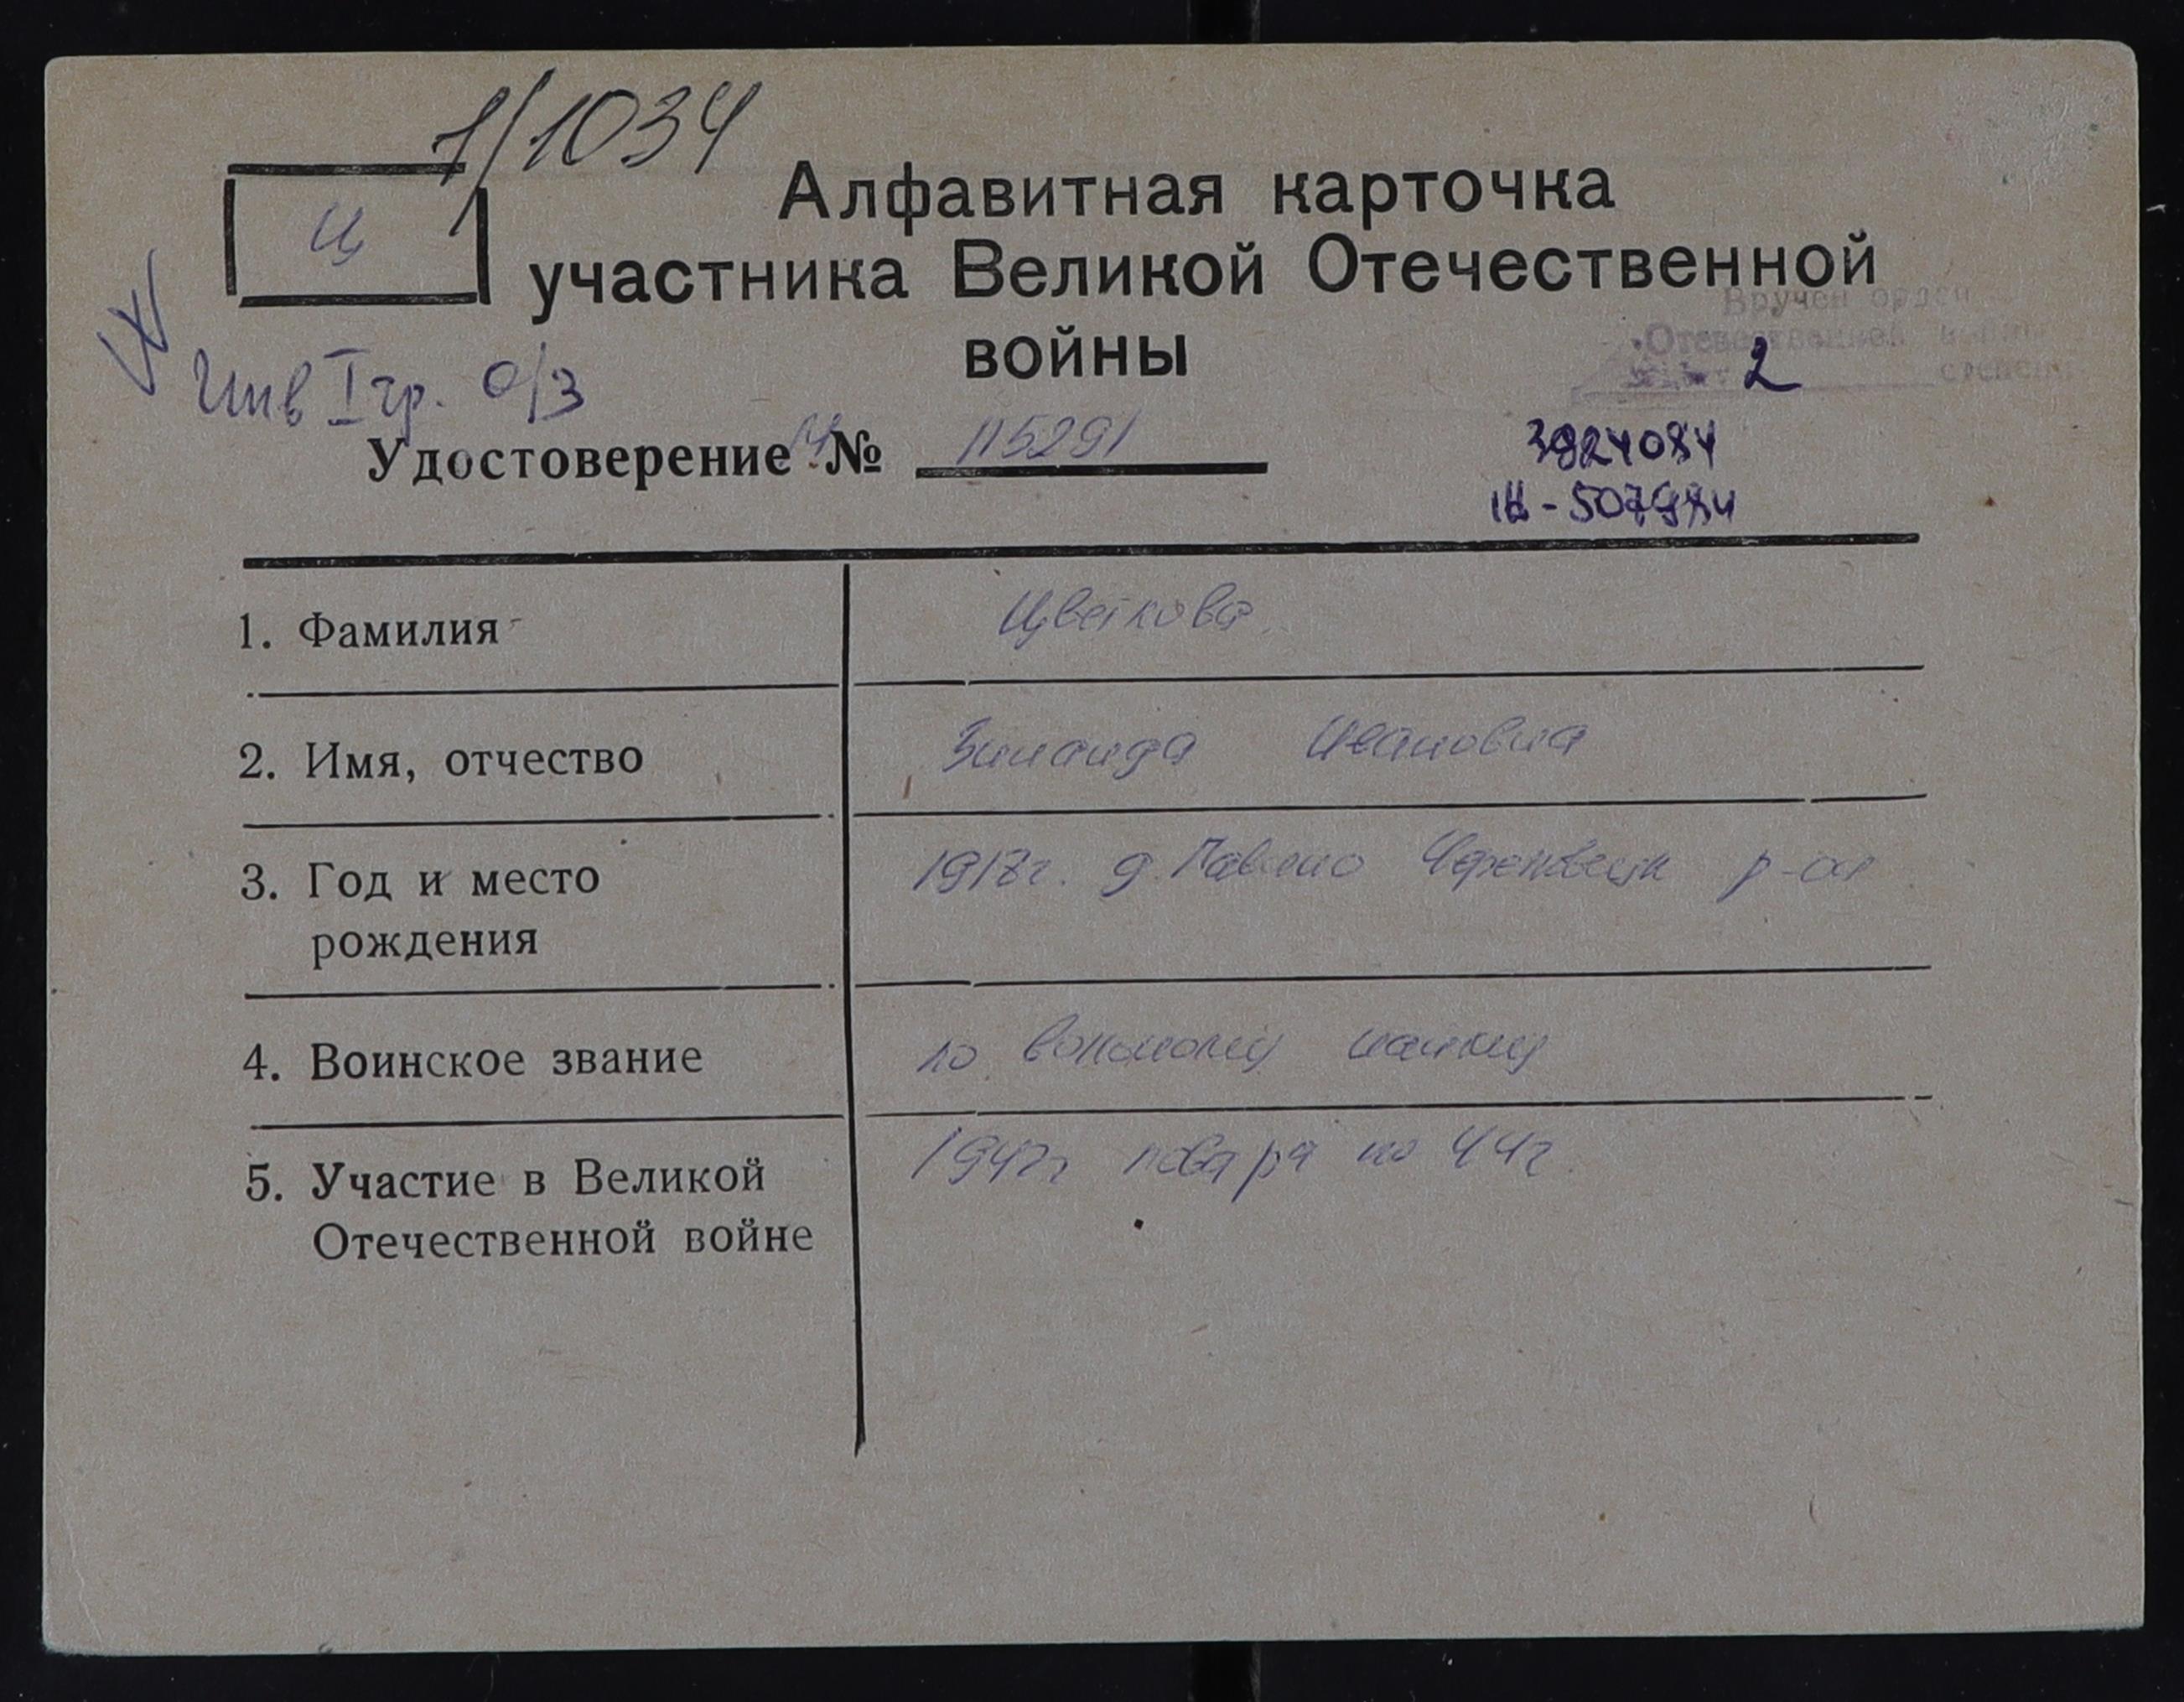 1/1034
Ц
Алфавитная карточка
участника Великой Отечественной
войны
Инв I гр. о/з
Вручен орден
Отечественной войны
2 степени
Удостоверение № 115291
1. Фамилия Цветкова
2. Имя, отчество Зинаида Ивановна
3. Год и место 1918г. д. Череповецк р-на
рождения
4. Воинское звание по вольному найму
5. Участие в Великой повара по 44г.
Отечественной войне